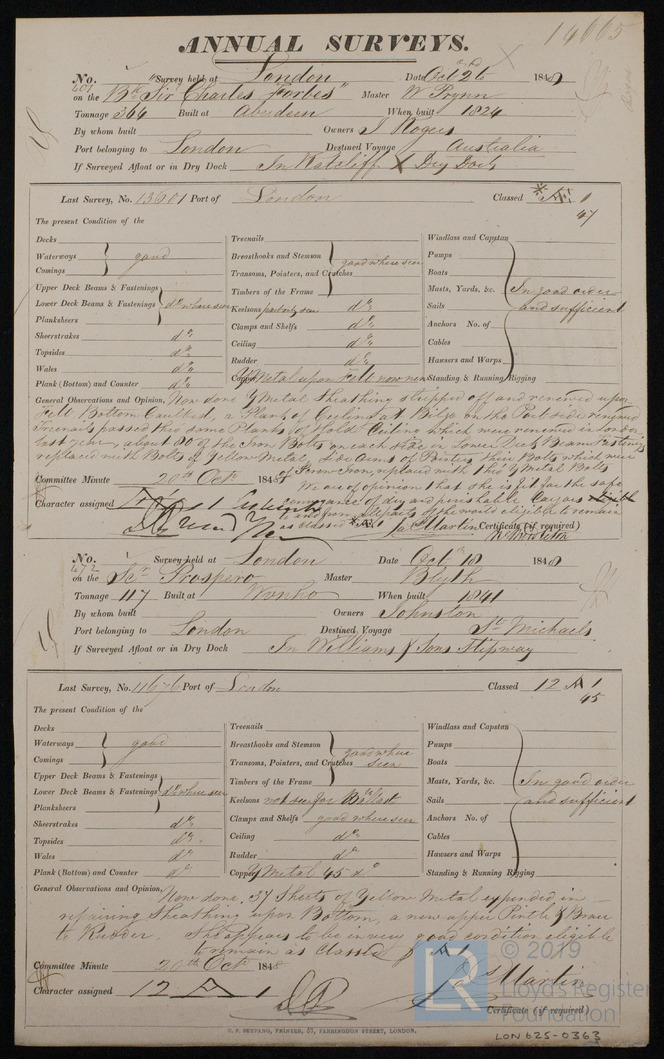 14665
ANNUAL SURVEYS.
No. 401 Survey held at London Date Oct 2d 1848
on the Bk "Sir Charles Forbes" Master W Prynn
Tonnage 364 Built at Aberdeen When built 1824
By whom built Owners J Rogers
Port belonging to London Destined Voyage Australia
If Surveyed Afloat or in Dry Dock In Ratcliff X Dry Dock
Last Survey, No. 13601 Port of London Classed *Æ 1
47
The present Condition of the
Decks
Waterways good
Comings
Upper Deck Beams & Fastenings
Lower Deck Beams & Fastenings do where seen
Planksheers
Sheerstrakes do
Topsides do
Wales do
Plank (Bottom) and Counter do
Treenails
Breasthooks and Stemson good where seen
Transoms, Pointers, and Crutches
Timbers of the Frame
Keelsons partly seen do
Clamps and Shelfs do
Ceiling do
Rudder do
Copper Y Metal upon Felt now new
Windlass and Capstan
Pumps
Boats
Masts, Yards, &c. In good order
Sails and sufficient
Anchors No. of
Cables
Hawsers and Warps
Standing & Running Rigging
General Observations and Opinion, Now done Y Metal Sheathing stripped off and renewed upon
Felt Bottom Caulked, a Plank of Ceiling at Bilge on the Port side renewed
Treenails passed thro some Planks of Hold Ceiling which were renewed in London
last year, about 80 of the Iron Bolts on each side in Lower Deck Beam Fastenings
replaced with Bolts of Yellow Metal, side Arms of Pointers their Bolts which were
of Iron, replaced with thro' Y Metal Bolts
We are of opinion that she is fit for the safe
conveyance of dry and perishable Cargoes eligible
and from all parts of the world eligible to remain
as classed *Æ 1 Jas Martin Certificate (if required)
Committee Minute 20th Oct 1848
Character assigned
No. 472 Survey held at London Date Oct 18 1848
on the Scr Prospero Master Blyth
Tonnage 117 Built at When built 1841
By whom built Owners Johnston
Port belonging to London Destined Voyage St Michaels
If Surveyed Afloat or in Dry Dock In Williams & Sons Slipway
Last Survey, No. 11676 Port of London Classed 12 A 1
45
The present Condition of the
Decks
Waterways good
Comings
Upper Deck Beams & Fastenings
Lower Deck Beams & Fastenings do where seen
Planksheers
Sheerstrakes do
Topsides do
Wales do
Plank (Bottom) and Counter do
Treenails
Breasthooks and Stemson good where
Transoms, Pointers, and Crutches seen
Timbers of the Frame
Keelsons not seen for Ballast
Clamps and Shelfs good where seen
Ceiling do
Rudder do
Copper Y Metal 45 do
Windlass and Capstan
Pumps
Boats
Masts, Yards, &c. In good order
Sails and sufficient
Anchors No. of
Cables
Hawsers and Warps
Standing & Running Rigging
General Observations and Opinion, Now done, 37 Sheets of Yellow Metal expended in
repairing Sheathing upon Bottom, a new upper Pintle & Brace
to Rudder She appears to be in very good condition eligible
to remain as Classed A 1
Committee Minute 20th Oct 1848
Jas Martin
Character assigned 12 A 1
Certificate (if required)
LR © 2019
Lloyd's Register
Foundation
C. F. SEYFANG, PRINTER, 57, FARRINGDON STREET, LONDON.
LON625-0363